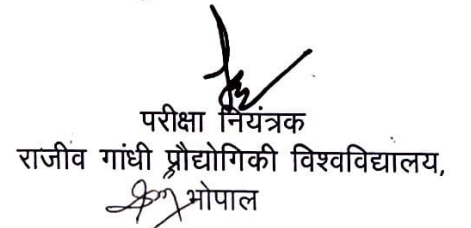 परीक्षा नियंत्रक
राजीव गांधी प्रौद्योगिकी विश्वविद्यालय,
भोपाल